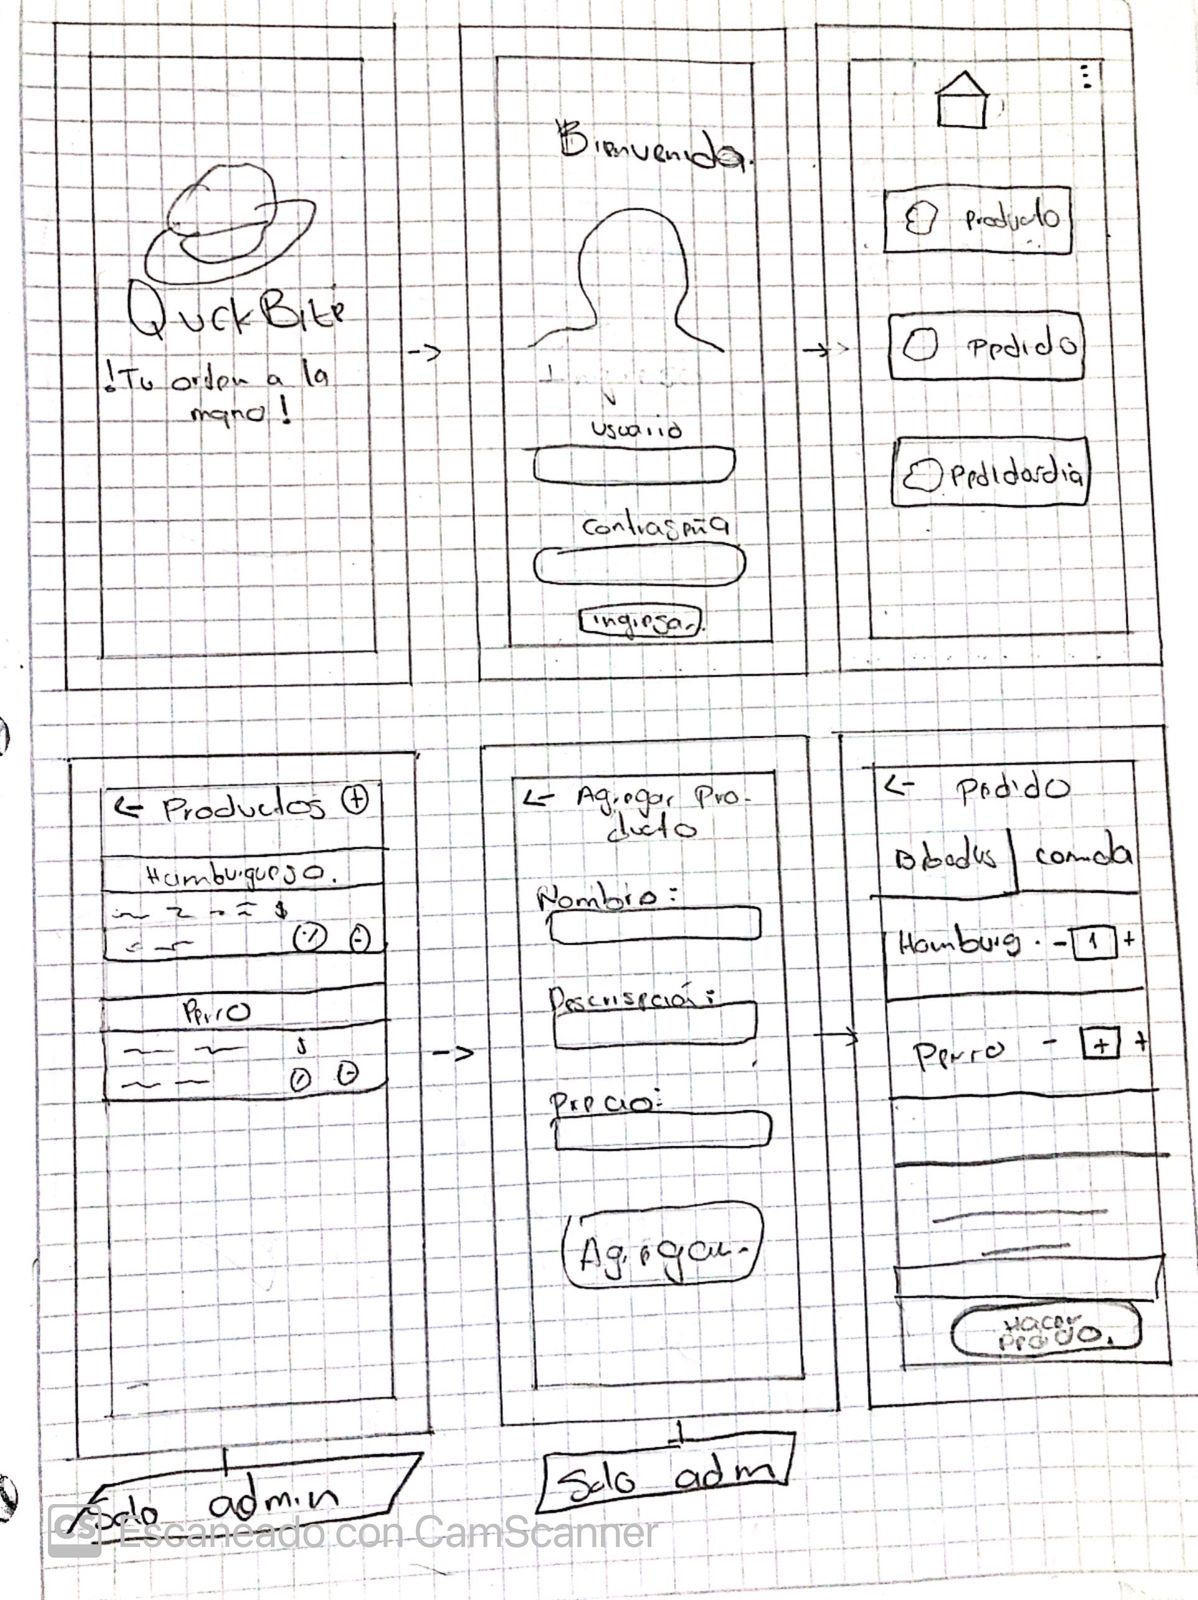 QuckBite
!Tu orden a la
mano!
Bienvenida.
usuario
contraseña
ingresar.
Producto
Pedido
Pedidosdia
← Productos +
Hamburguesa.
$
Perro
$
← Agregar Pro-
ducto
Nombre:
Descrispción:
Precio:
Agregar.
← Pedido
Bebadas comida
Hamburg. - 1 +
Perro - + +
Hacer
Pedido.
Solo admin
Solo adm
CS Escaneado con CamScanner